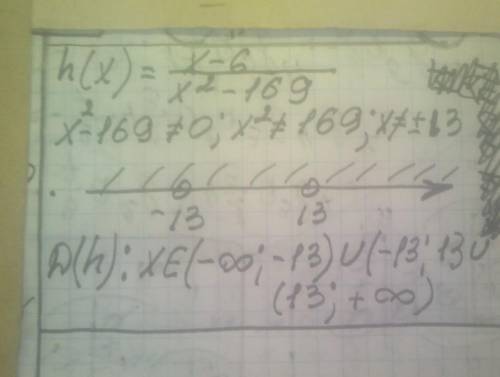 h(x) = x-6 / x² - 169
x² - 169 ≠ 0; x² ≠ 169; x ≠ ± 13
-13 13
D(h): XE(-∞; -13) ∪ (-13; 13 ∪
(13; + ∞)